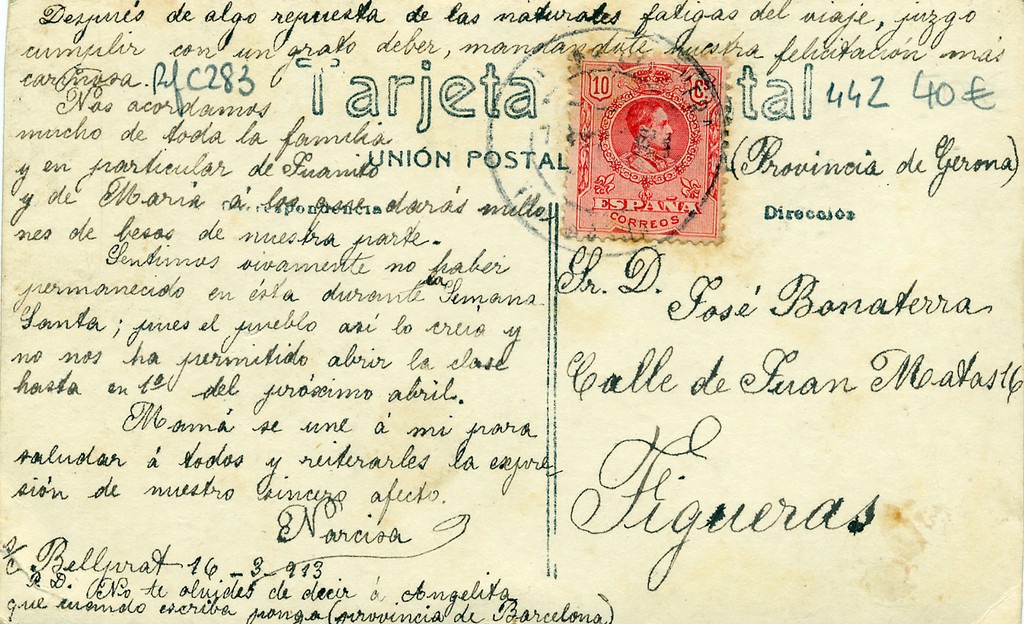 Después de algo repuesta de las naturales fatigas del viaje, juzgo
cumplir con un grato deber, mandándote nuestra felicitación más
cariñosa.
Ref C283
Tarjeta Postal
442 40€
Nos acordamos
mucho de toda la familia
y en particular de Juanito
UNIÓN POSTAL
(Provincia de Gerona)
y de María á los que darás millo-
Correspondencia
Dirección
nes de besos de nuestra parte.
Sentimos vivamente no haber
permanecido en ésta durante la Semana
Santa; pues el pueblo así lo creía y
no nos ha permitido abrir la clase
hasta en 1º del próximo abril.
Mamá se une á mi para
saludar á todos y reiterarles la expre-
sión de nuestro sincero afecto.
Narcisa
s/c Bellprat 16-3-913
P.D. No te olvides de decir á Angelita
que cuando escriba ponga (provincia de Barcelona)
10
ESPAÑA
CORREOS
Sr. D.
José Bonaterra
Calle de Juan Matas 16
Figueras